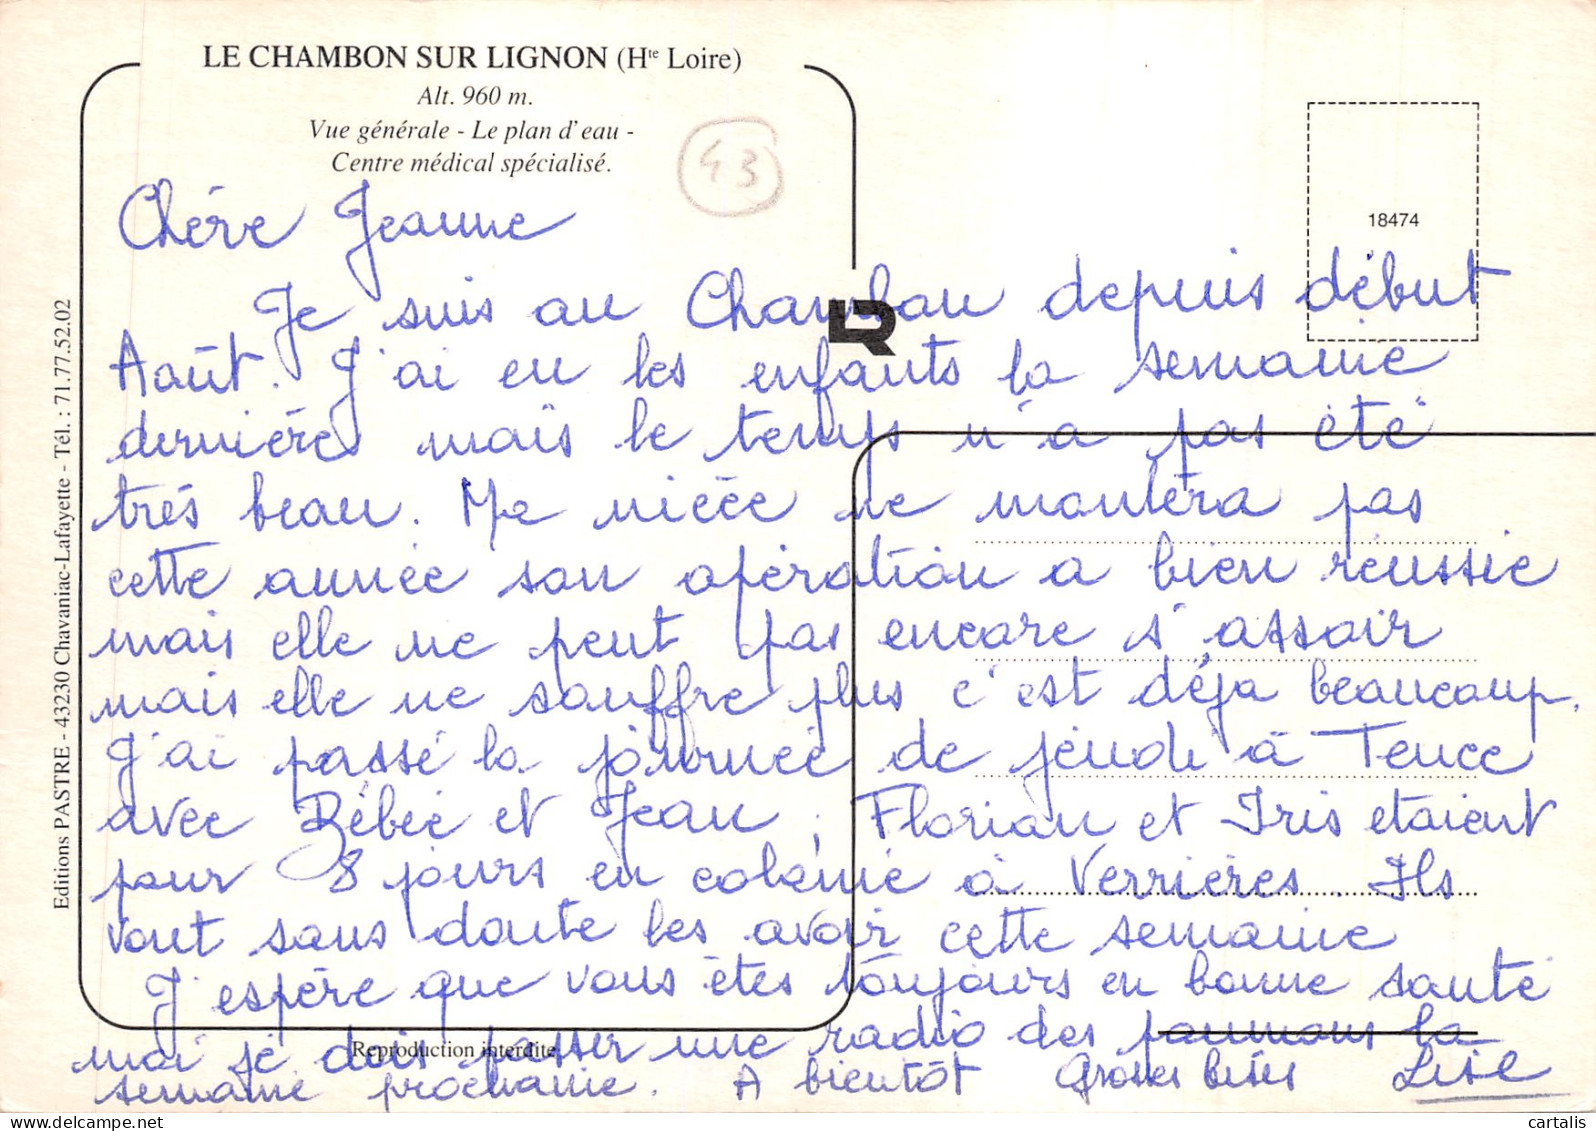 LE CHAMBON SUR LIGNON (Hte Loire)
Alt. 960 m.
Vue générale - Le plan d'eau -
Centre médical spécialisé.
43
18474
Editions PASTRE - 43230 Chavaniac-Lafayette - Tél. : 71.77.52.02
LR
Chére Jeanne
Je suis au Chambon depuis début
Août. J'ai eu les enfants la semaine
derniére mais le temps n'a pas été
trés beau. Ma niéce ne montera pas
cette année son opération a bien réussie
mais elle ne peut pas encore s'assoir
mais elle ne souffre plus c'est déja beaucoup.
J'ai passé la journée de jeudi à Tence
avec Bébée et Jean, Florian et Iris etaient
pour 8 jours en colonie à Verriéres. Ils
vont sans doute les avoir cette semaine
J'espére que vous étes toujours en bonne santé
moi je dois passer une radio des poumons la
semaine prochaine. A bientôt Grosses bises Lise
Reproduction interdite
cartalis